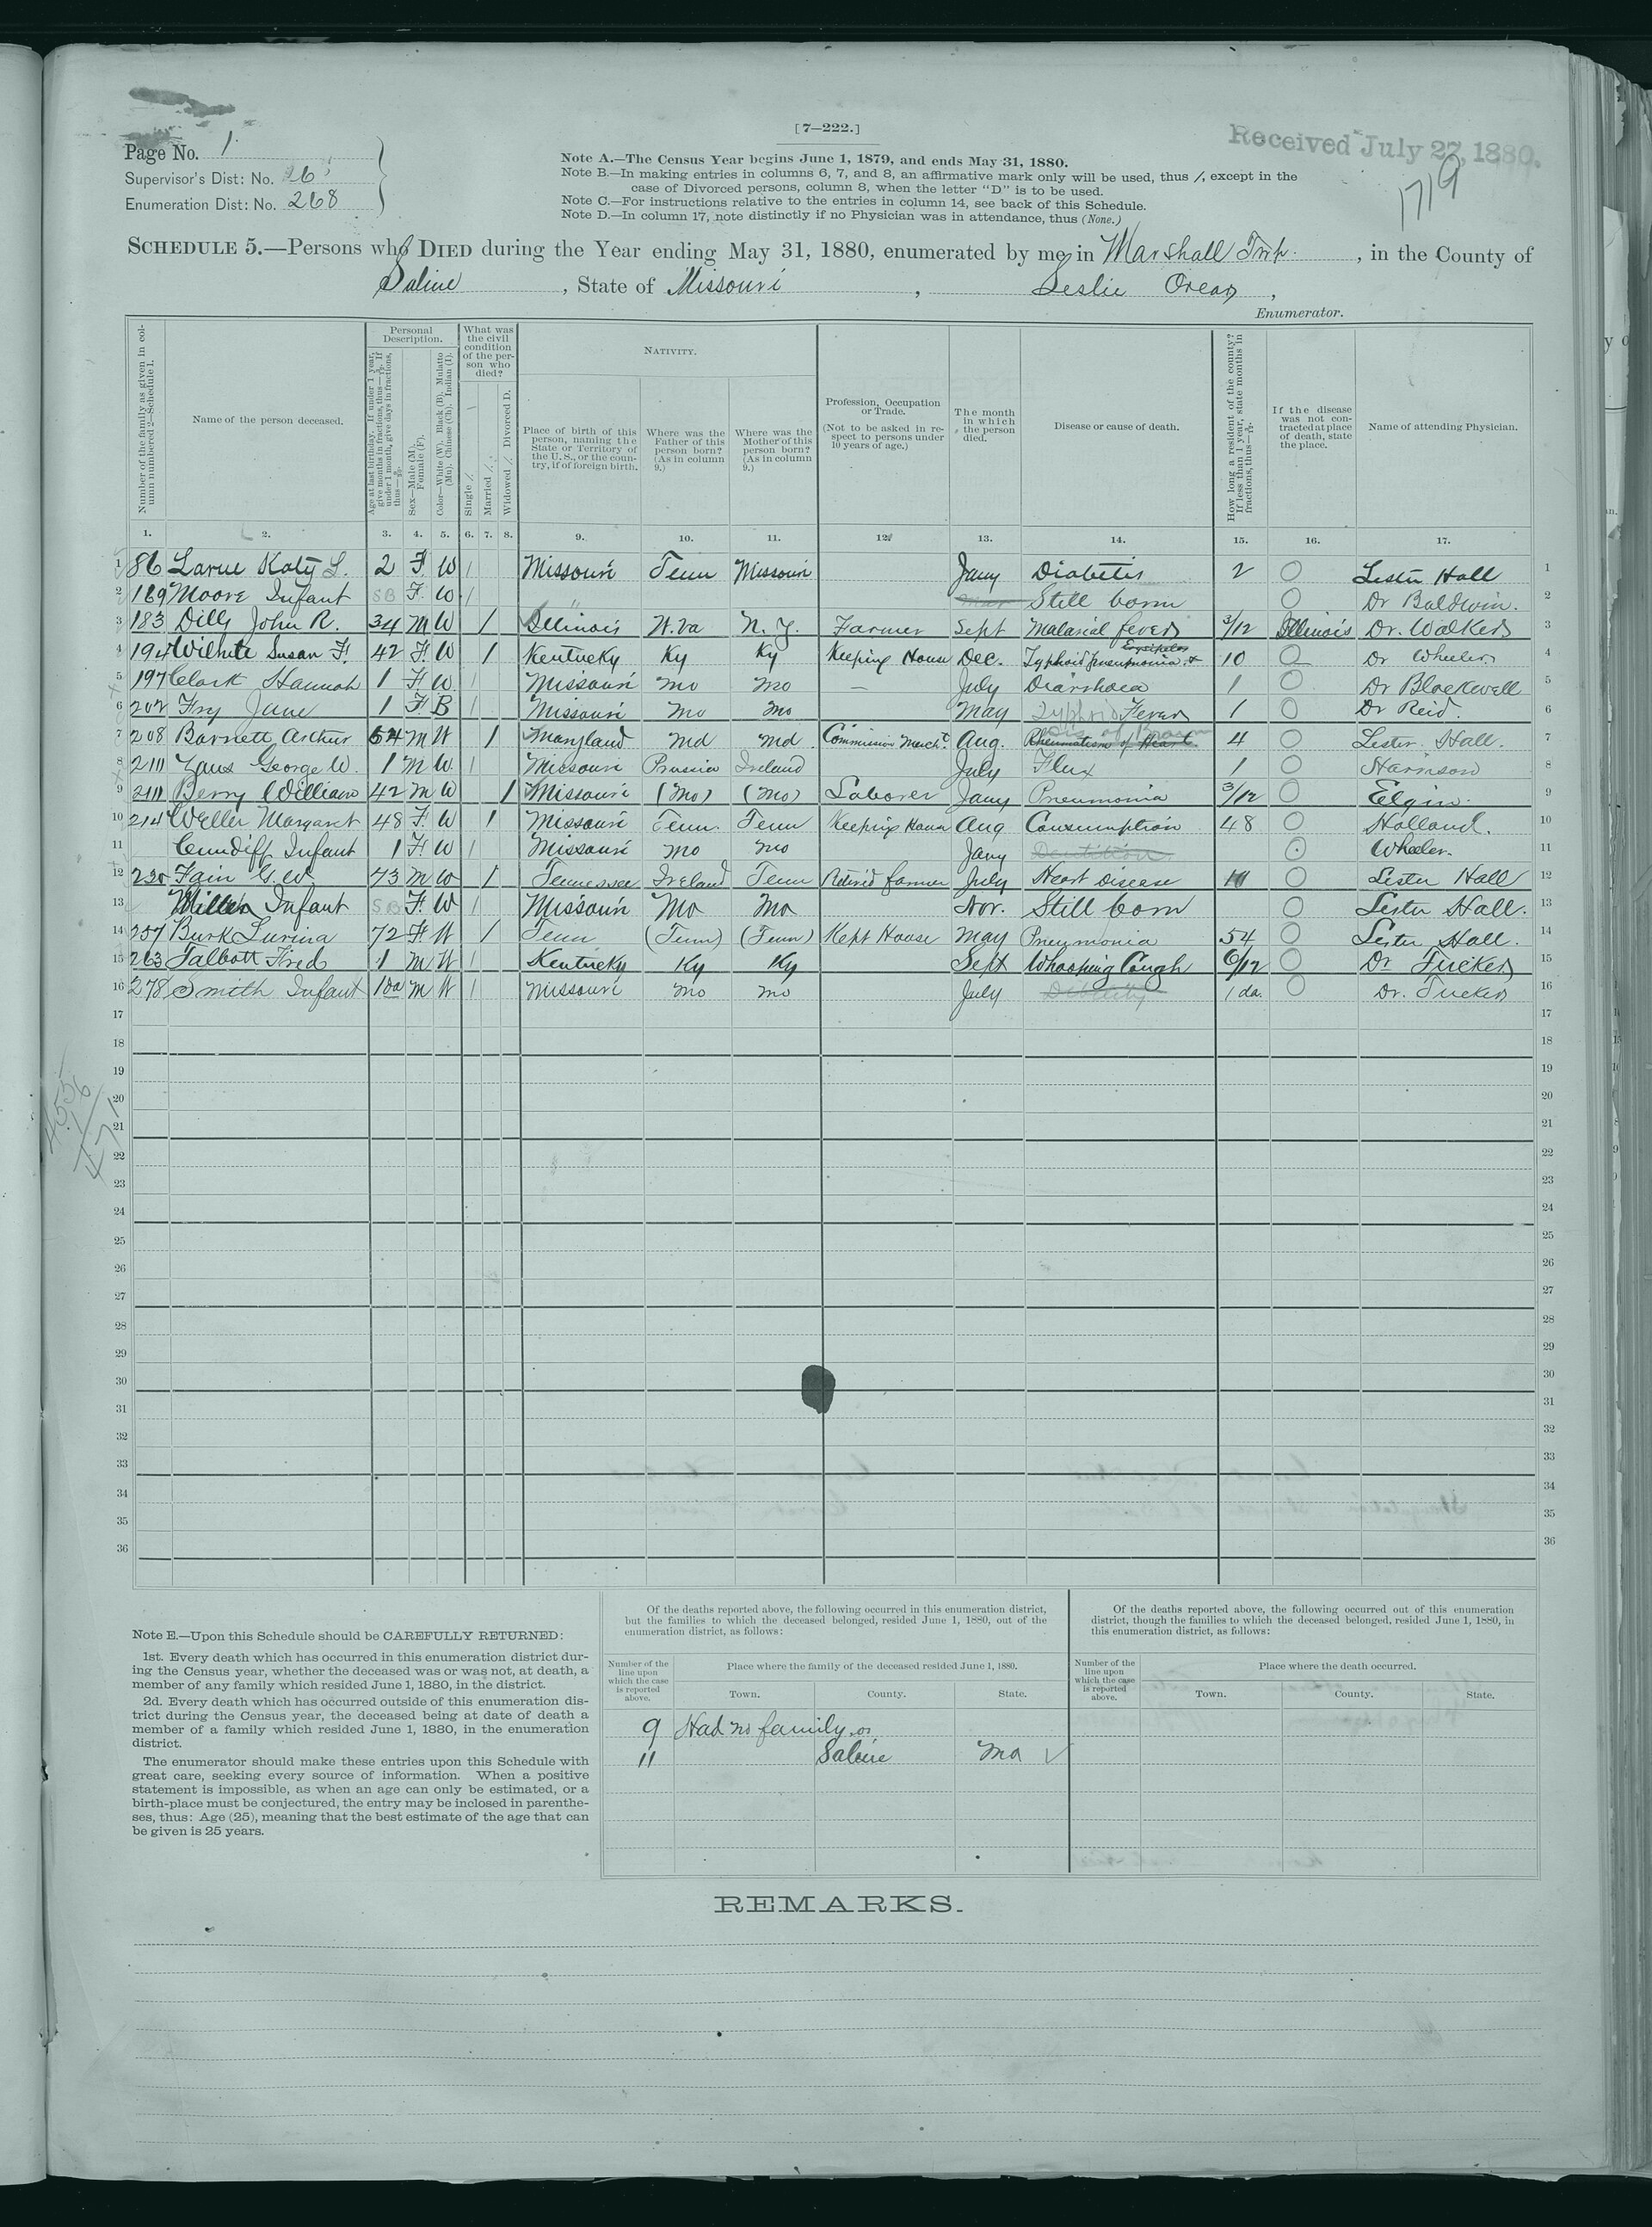 [7–222.]
Page No. 1
Supervisor's Dist: No. 26
Enumeration Dist: No. 268
Received July 27, 1880.
1719
Note A.—The Census Year begins June 1, 1879, and ends May 31, 1880.
Note B.—In making entries in columns 6, 7, and 8, an affirmative mark only will be used, thus /, except in the
case of Divorced persons, column 8, when the letter "D" is to be used.
Note C.—For instructions relative to the entries in column 14, see back of this Schedule.
Note D.—In column 17, note distinctly if no Physician was in attendance, thus (None.)
Schedule 5.—Persons who Died during the Year ending May 31, 1880, enumerated by me in Marshall Twp., in the County of
Saline, State of Missouri, Leslie Orear,
Enumerator.
Number of the family as given in column numbered 2—Schedule 1.
Name of the person deceased.
Personal Description.
Age at last birthday. If under 1 year, give months in fractions, thus— If under 1 month, give days in fractions, thus—
Sex—Male (M). Female (F).
Color—White (W). Black (B). Mulatto (Mu). Chinese (Ch). Indian (I).
What was the civil condition of the person who died?
Single /.
Married /.
Widowed /. Divorced D.
Nativity.
Place of birth of this person, naming the State or Territory of the U.S., or the country, if of foreign birth.
Where was the Father of this person born? (As in column 9.)
Where was the Mother of this person born? (As in column 9.)
Profession, Occupation or Trade. (Not to be asked in respect to persons under 10 years of age.)
The month in which the person died.
Disease or cause of death.
How long a resident of the county? If less than 1 year, state months in fractions, thus—
If the disease was not contracted at place of death, state the place.
Name of attending Physician.
1. 2. 3. 4. 5. 6. 7. 8. 9. 10. 11. 12. 13. 14. 15. 16. 17.
1 86 Larue Katy L. 2 F W / Missouri Tenn Missouri Jany Diabetis 2 O Lester Hall 1
2 169 Moore Infant SB F. W / Still born O Dr Baldwin. 2
3 183 Dills John R. 34 M W / Illinois W.Va N.Y. Farmer Sept Malarial fever 3/12 Illinois Dr. Walker 3
4 194 Wilhite Susan F. 42 F. W / Kentucky Ky Ky Keeping House Dec. Typhoid pneumonia & Erysipelas 10 O Dr Wheeler 4
5 197 Clark Hannah 1 F. W. / Missouri Mo Mo — July Diarrhoea 1 O Dr Blackwell 5
6 202 Fry Jane 1 F. B / Missouri Mo Mo May Typhoid Fever 1 O Dr Reid. 6
7 208 Barnett Arthur 64 M W / Maryland Md Md. Commission Mercht. Aug. Rheumatism of Heart Dis of Brain 4 O Lester Hall. 7
8 211 George W. 1 M W. / Missouri Prussia Ireland July Flux 1 O Harrison 8
9 211 Berry William 42 M W / Missouri (Mo) (Mo) Laborer Jany Pneumonia 3/12 O Elgin. 9
10 214 Weller Margaret 48 F. W / Missouri Tenn. Tenn Keeping House Aug Consumption 48 O Holland. 10
11 Cundiff Infant 1 F. W / Missouri Mo Mo Jany Dentition O Wheeler. 11
12 230 Fain G.W. 73 M W / Tennessee Ireland Tenn Retired farmer July Heart Disease O Lester Hall 12
13 Miller Infant SB F. W / Missouri Mo Mo Nov. Still born O Lester Hall. 13
14 257 Burk Lurina 72 F W / Tenn (Tenn) (Tenn) Kept House May Pneumonia 54 O Lester Hall. 14
15 263 Talbott Fred 1 M W / Kentucky Ky Ky Sept Whooping Cough 6/12 O Dr Tucker 15
16 278 Smith Infant 1 da M W / Missouri Mo Mo July Debility 1 da. O Dr. Tucker 16
17 17
18 18
19 19
20 20
21 21
22 22
23 23
24 24
25 25
26 26
27 27
28 28
29 29
30 30
31 31
32 32
33 33
34 34
35 35
36 36
Note E.—Upon this Schedule should be CAREFULLY RETURNED:
1st. Every death which has occurred in this enumeration district dur-
ing the Census year, whether the deceased was or was not, at death, a
member of any family which resided June 1, 1880, in the district.
2d. Every death which has occurred outside of this enumeration dis-
trict during the Census year, the deceased being at date of death a
member of a family which resided June 1, 1880, in the enumeration
district.
The enumerator should make these entries upon this Schedule with
great care, seeking every source of information. When a positive
statement is impossible, as when an age can only be estimated, or a
birth-place must be conjectured, the entry may be inclosed in parenthe-
ses, thus: Age (25), meaning that the best estimate of the age that can
be given is 25 years.
Of the deaths reported above, the following occurred in this enumeration district,
but the families to which the deceased belonged, resided June 1, 1880, out of the
enumeration district, as follows:
Number of the line upon which the case is reported above.
Place where the family of the deceased resided June 1, 1880.
Town. County. State.
9 Had no family
11 Saline Mo
Of the deaths reported above, the following occurred out of this enumeration
district, though the families to which the deceased belonged, resided June 1, 1880, in
this enumeration district, as follows:
Number of the line upon which the case is reported above.
Place where the death occurred.
Town. County. State.
REMARKS.